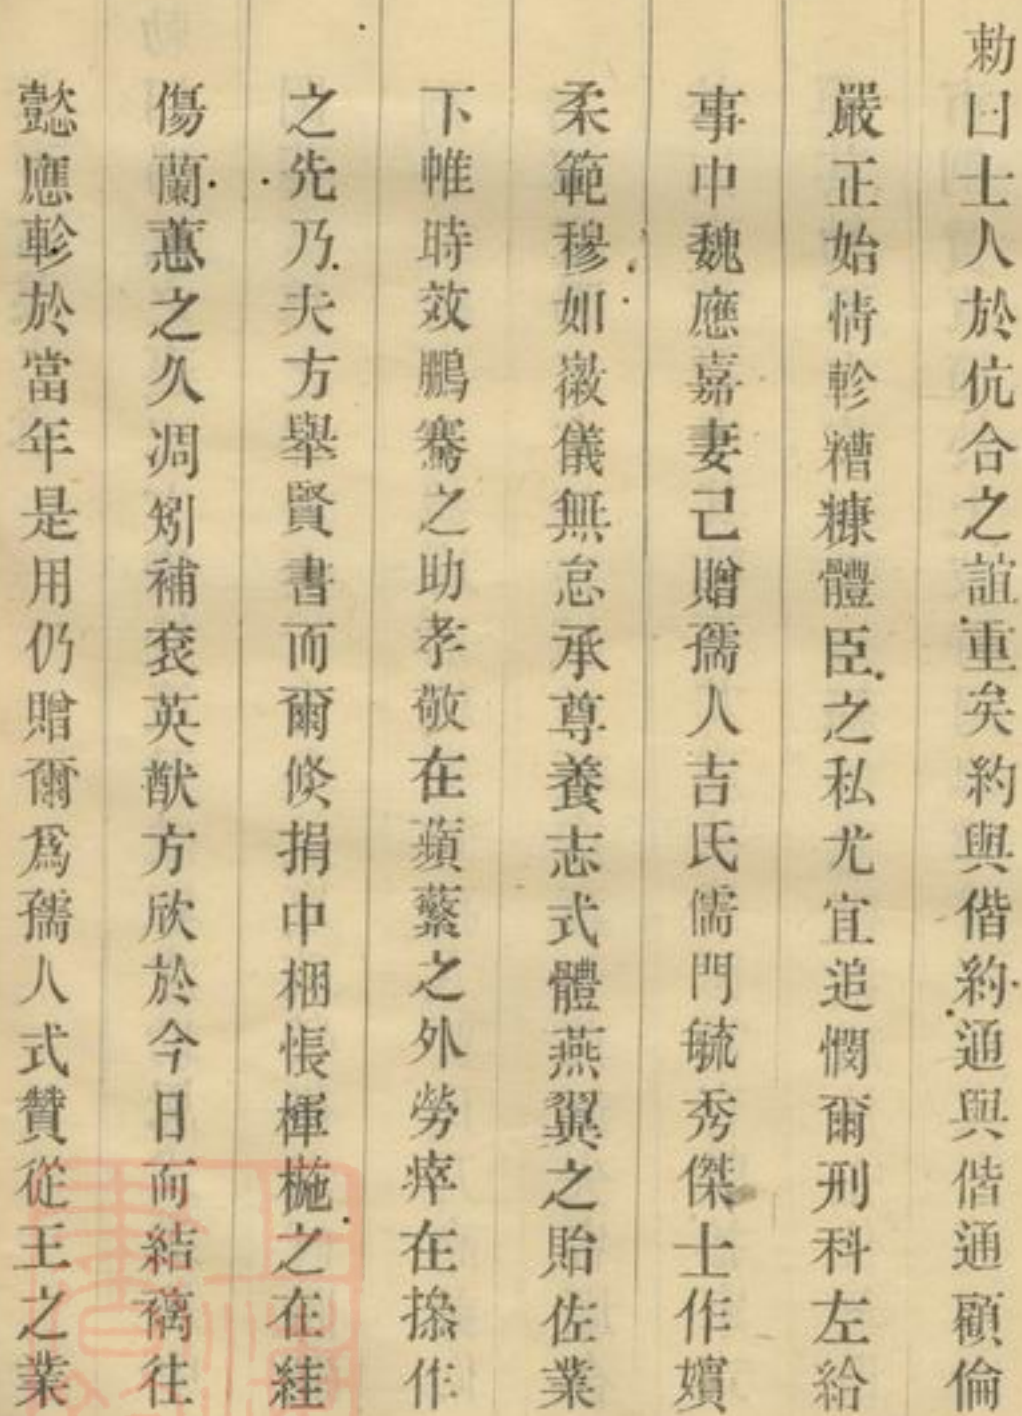 勅曰士人於伉合之誼重矣約與偕約通與偕通顧倫
嚴正始情軫糟糠體臣之私尤宜追憫爾刑科左給
事中魏應嘉妻己贈孺人吉氏儒門毓秀傑士作嬪
柔範穆如徽儀無怠承尊養志式體燕翼之貽佐業
下帷時效鵬騫之助孝敬在蘋蘩之外勞瘁在操作
之先乃夫方舉賢書而爾倐捐中梱悵楎椸之在絓
傷蘭蕙之久凋矧補袞英猷方欣於今日而結褵往
懿應軫於當年是用仍贈爾爲孺人式贊從王之業